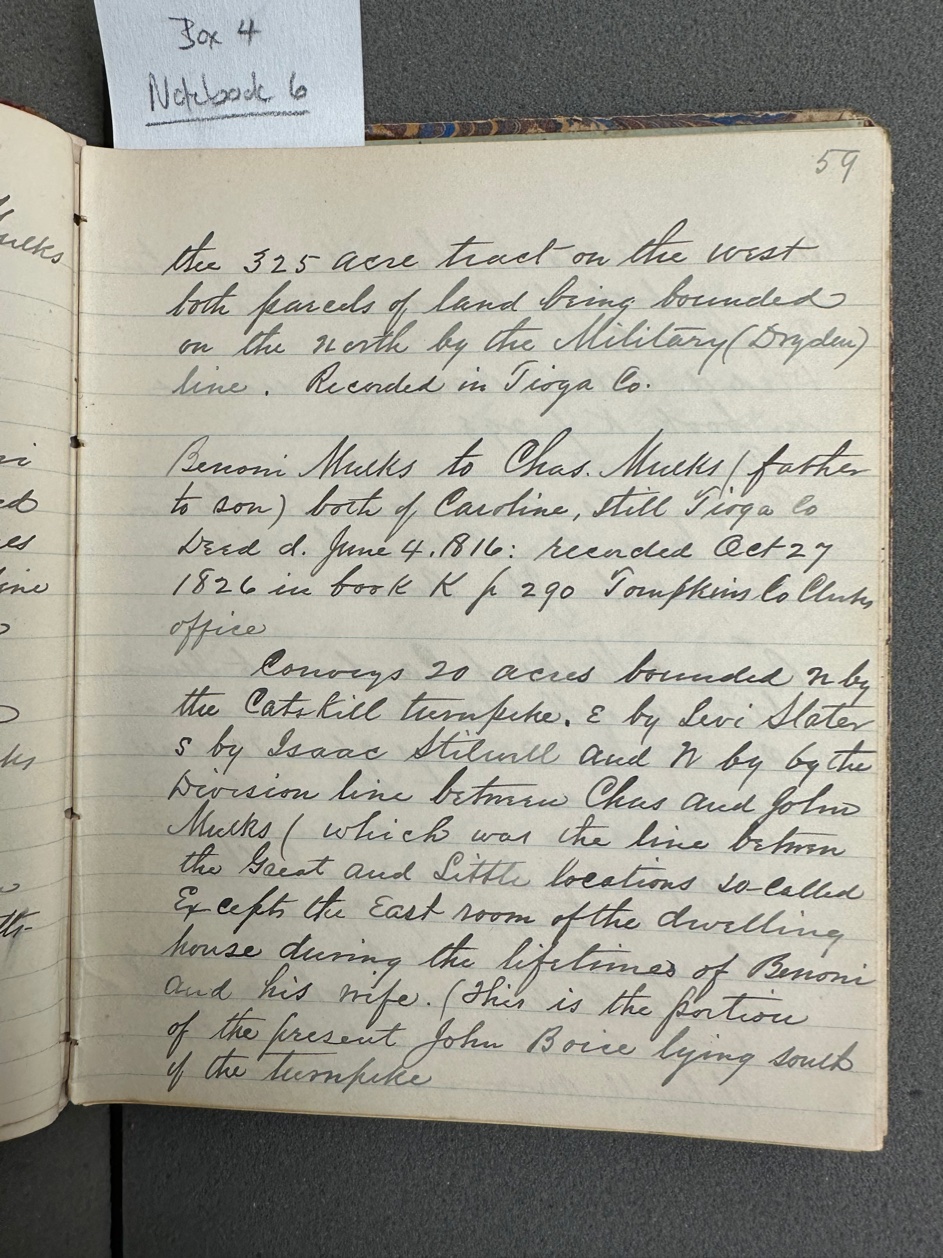 Box 4
Notebook 6
59
the 325 acre tract on the west
both parcels of land being bounded
on the north by the Military (Dryden)
line. Recorded in Tioga Co.
Benoni Mulks to Chas. Mulks (father
to son) both of Caroline, still Tioga Co
Deed d. June 4. 1816: recorded Oct 27
1826 in book K p 290 Tompkins Co Clerks
office
Conveys 20 acres bounded N by
the Catskill turnpike. E by Levi Slater
S by Isaac Stilwell and N by by the
Division line between Chas and John
Mulks (which was the line between
the Great and Little locations so-called
Excepts the East room of the dwelling
house during the lifetimes of Benoni
and his wife. (This is the portion
of the present John Boice lying south
of the turnpike